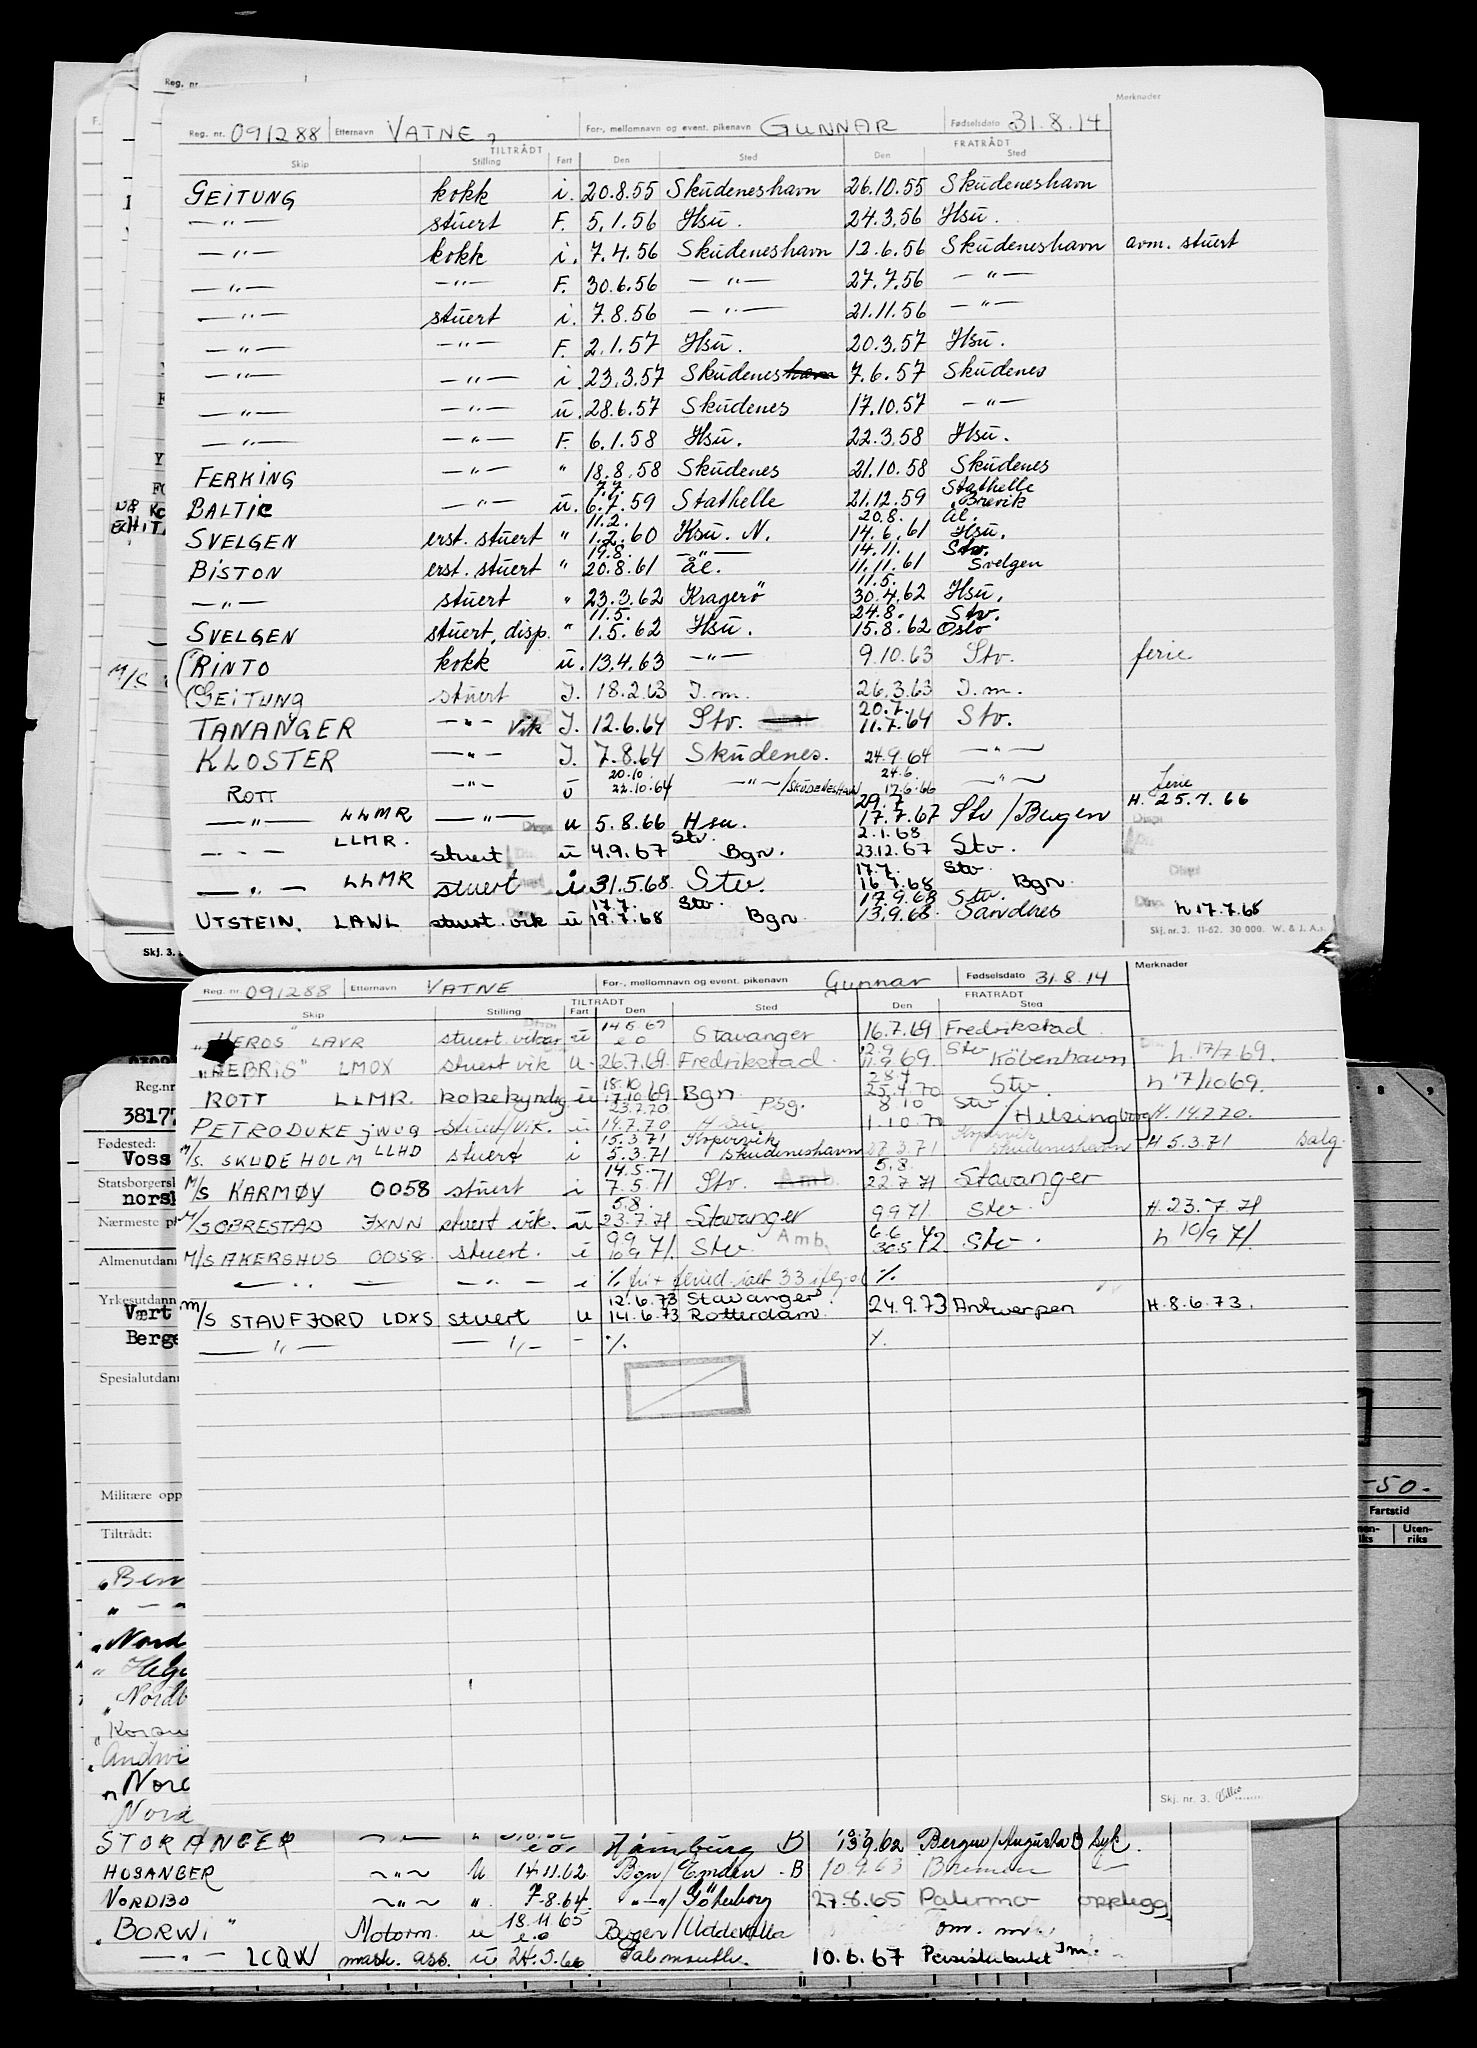 Reg. nr.
Merknader
Reg. nr. 091288 Etternavn VATNE, For-, mellomnavn og event. pikenavn GUNNAR Fødselsdato 31.8.14
TILTRÅDT FRATRÅDT
Skip Stilling Fart Den Sted Den Sted
GEITUNG kokk i. 20.8.55 Skudeneshavn 26.10.55 Skudeneshavn
—"— stuert F. 5.1.56 Hsu. 24.3.56 Hsu.
—"— kokk i. 7.4.56 Skudeneshavn 12.6.56 Skudeneshavn avm. stuert
—"— —"— F. 30.6.56 —"— 27.7.56 —"—
—"— stuert i. 7.8.56 —"— 21.11.56 —"—
—"— —"— F. 2.1.57 Hsu. 20.3.57 Hsu.
—"— —"— i. 23.3.57 Skudeneshavn 7.6.57 Skudenes
—"— —"— u. 28.6.57 Skudenes 17.10.57 —"—
—"— —"— F. 6.1.58 Hsu. 22.3.58 Hsu.
FERKING —"— " 18.8.58 Skudenes 21.10.58 Skudenes
7.7. Stathelle
BALTIC —"— u. 6.7.59 Stathelle 21.12.59 Brevik
11.2. 20.8. Ål.
SVELGEN erst. stuert " 1.2.60 Hsu. N. 14.6.61 Hsu.
19.8. —"— 14.11. Stv.
BISTON erst. stuert " 20.8.61 Ål. 11.11.61 Svelgen
11.5.
—"— stuert " 23.3.62 Kragerö 30.4.62 Hsu.
11.5. 24.8. Stv.
SVELGEN stuert, disp. " 1.5.62 Hsu. 15.8.62 Oslo
RINTO kokk u. 13.4.63 —"— 9.10.63 Stv. ferie
GEITUNG stuert J. 18.2.63 J.m. 26.3.63 J.m.
20.7.
TANANGER —"— Vik J. 12.6.64 Stv. 11.7.64 Stv.
KLOSTER —"— J. 7.8.64 Skudenes. 24.9.64 —"—
20.10. 24.6
ROTT —"— u 22.10.64 —"—/SKUDENESHAVN 17.6.66 —"— ferie
29.7 H. 25.7.66
—"— LLMR —"— u 5.8.66 Hsu. 17.7.67 Stv/Bergen
Stv. 2.1.68
—"— LLMR. stuert u 4.9.67 Bgn. 23.12.67 Stv.
17.7. Stv
—"— LLMR stuert i 31.5.68. Stv. 16.7.68 Bgn.
17.7. Stv 17.9.68 Stv.
UTSTEIN. LAWL stuert. vik u 19.7.68 Bgn 13.9.68. Sandnes h 17.7.68
Skj. nr. 3. 11-62. 30 000. W. & J. A.s.
Skj. 3.
Merknader
Reg. nr. 091288 Etternavn VATNE For-, mellomnavn og event. pikenavn Gunnar Fødselsdato 31.8.14
TILTRÅDT FRATRÅDT
Skip Stilling Fart Den Sted Den Sted
14.5.69
"HEROS" LAVR stuert. vikar u e.o Stavanger 16.7.69 Fredrikstad
12.9 Stv
"HEBRIS" LMOX stuert vik u. 26.7.69. Fredrikstad. 11.9.69. Köbenhavn h. 17/7.69.
18.10 28.4
ROTT LLMR. kokekyndig u 17.10.69 Bgn 25.4.70 Stv h 7/10 69.
23.7.70 psg. 8.10 Stv
PETRODUKE JWUQ stuert/vik. u 19.7.70 Hsu 1.10.70 /Helsingborg H. 14.7.70.
15.3.71 Kopervik Kopervik
M/S. SKUDEHOLM LLHD stuert i 5.3.71 Skudeneshavn 27.3.71 Skudeneshavn H 5.3.71 salg.
14.5. 5.8.
M/S KARMØY OO58 stuert i 7.5.71 Stv. 22.7.71 Stavanger
5.8.
M/S OBRESTAD JXNN stuert vik. u 23.7.71 Stavanger 9.9.71 Stv H. 23.7.71
9.9 Amb. 6.6
M/S AKERSHUS OO58. stuert. i 10.9.71. Stv 30.5.72 Stv. h 10/9 71.
—"— —"— i
12.6.73 Stavanger
M/S STAVFJORD LDXS stuert u 14.6.73 Rotterdam. 24.9.73 Antwerpen H. 8.6.73.
—"— —"— - %. %.
Skj. nr. 3.
Reg.nr
38177
Fødested:
Voss
Statsborgersk
norsk
Nærmeste p
Almenutdann
Yrkesutdann
Vært
Berge
Spesialutdann
Militære opp
Tiltrådt:
-50.
Fartstid
Uten-
riks
Nord
Nordb
Nord
STORANGER —"— Hamburg B 13.9.62 Bergen/Augusta syk.
HOSANGER —"— u 14.11.62 Bgn/Emden - B 10.9.63 Bremen
NORDBO —"— ". 7.8.64. —"—/Göteborg 27.8.65 Palermo opplegg
18.11.65
"BORWI" Motorm. u e.o Bergen/Uddevalla
—"— LCQW mask. ass. u 24.5.66 Falmouth. 10.6.67